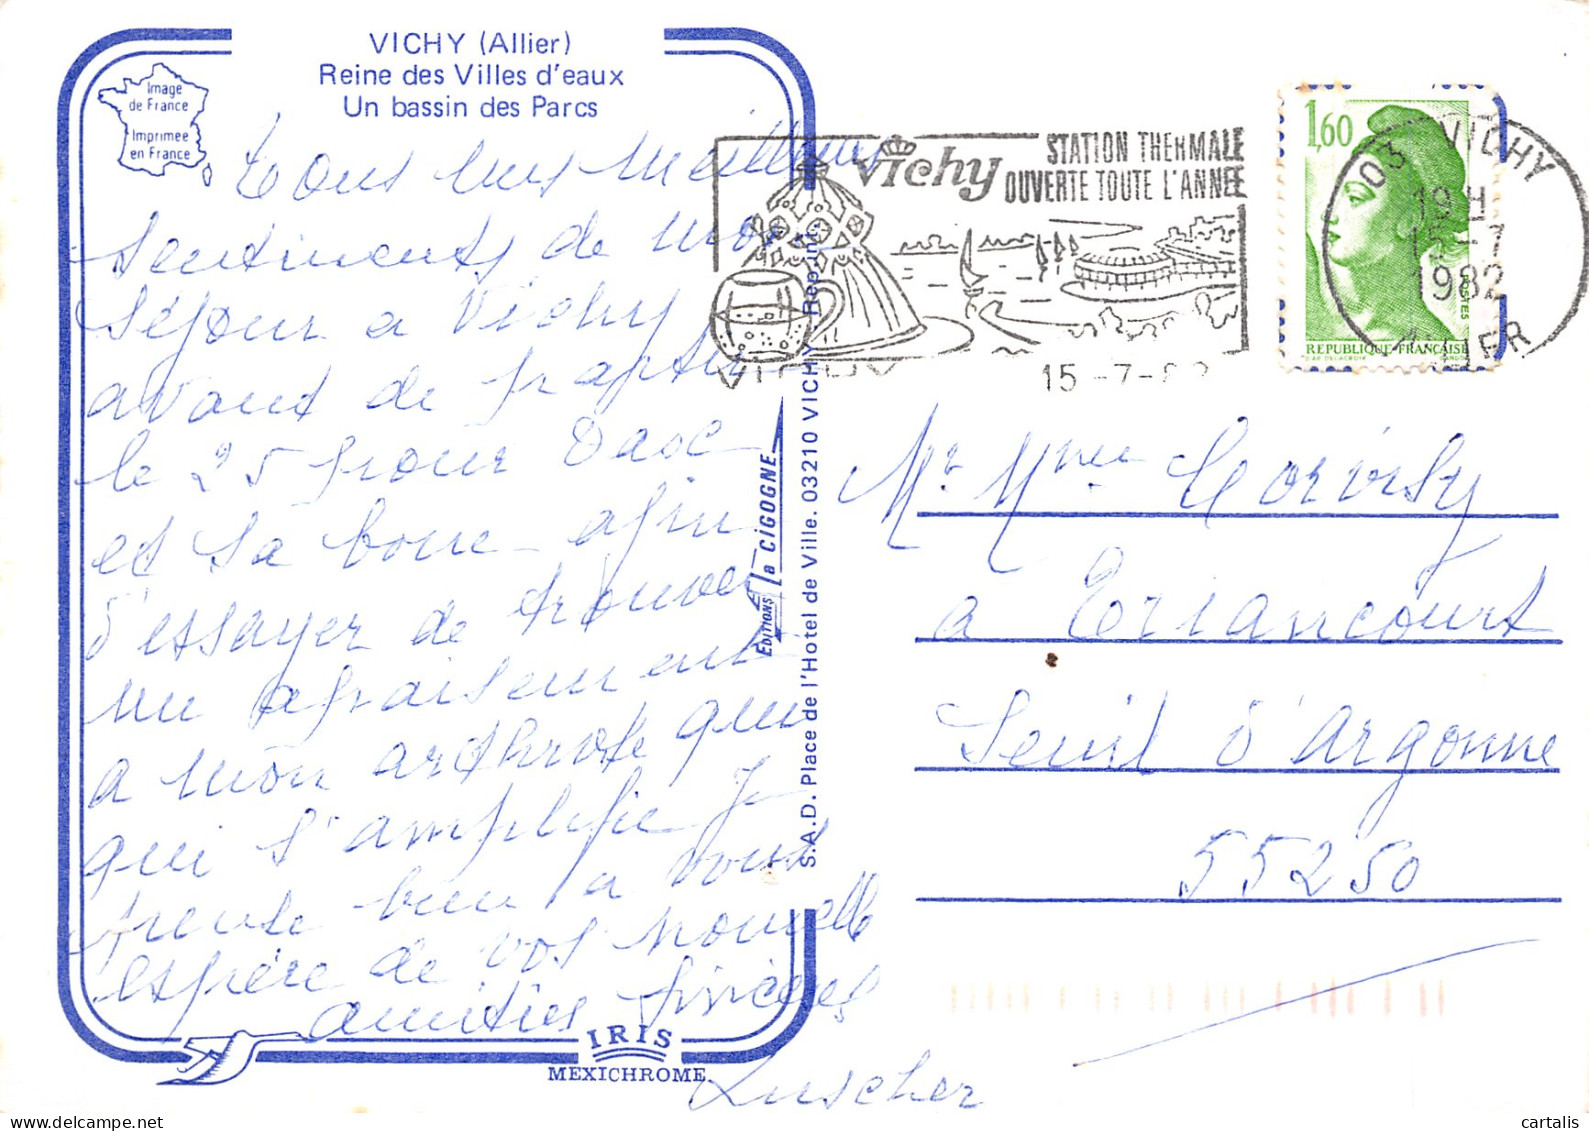 VICHY (Allier)
Reine des Villes d'eaux
Un bassin des Parcs
Image
de France
Imprimée
en France
Tous mes meilleurs
sentiments de mon
séjour a Vichy
avant de partir
le 25 pour Dasc
et sa boue afin
d'essayer de trouver
un apaisement
a mon arthrose qui
qui s'amplifie Je
pense bien a vous
espère de vos nouvelle
amitiés sincères
Luscher
IRIS
MEXICHROME
EDITIONS la CIGOGNE
S.A.D. Place de l'Hotel de Ville. 03210 VICHY Rep. int.
Vichy
STATION THERMALE
OUVERTE TOUTE L'ANNEE
VICHY
15-7-82
1,60
POSTES
REPUBLIQUE FRANÇAISE
03 VICHY
19H
15-7
1982
ALLIER
Mr Mme Corvisy
a Triancourt
Seuil d'argonne
55250
cartalis